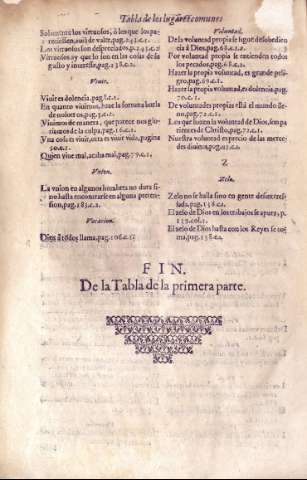 Tabla de los lugares comunes
Solos tres los virtuosos, ò los que lo pa-
recissen, auiã de valer, pag.141.c.1.
Los virtuosos son despreciados, p.141.c.2
Virtuosos ay que lo son en las cosas de su
gusto y interesse, pag.138.c.2.
Viuir.
Viuir es dolencia, pag.
En quanto viuimos, haze la fortuna burla
de nosotros, pag.
Viuimos de manera, que parece nos glo-
riamos de la culpa, pag.16.c.1.
Vna cosa es viuir, otra es viuir vida, pagina
50.c.1.
Quien viue mal, acaba mal, pag.79.c.1.
Vnion.
La vnion en algunos hombres no dura si-
no hasta encontrarse en alguna preten-
sion, pag.183.c.2.
Vocacion.
Dios à todos llama, pag.106.c.
Voluntad.
De la voluntad propia se sigue el desobedien-
cia à Dios, pag.68.c.2.
Por voluntad propia se entienden todos
los pecados, pag.68.c.2.
Hazer la propia voluntad, es grande peli-
gro, pag.69.c.1.
Hazer la propia voluntad, es dolencia, pag.
70.c.1.
De voluntades propias està el mundo lle-
no, pag.71.c.1.
Los que hazen la voluntad de Dios, son pa-
rientes de Christo, pag.71.c.1.
Nuestra voluntad es precio de las merce-
des diuinas, pag.
Z
Zelo.
Zelo no se halla sino en gente desinteres-
sada, pag.138.c.1.
El zelo de Dios en los trabajos se apura, p.
139.col.1.
El zelo de Dios hasta con los Reyes se to-
ma, pag.138.c.2.
FIN.
De la Tabla de la primera parte.